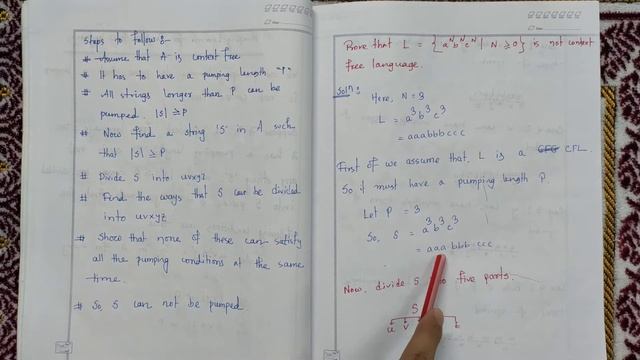 Steps to follow :-
# Assume that A is context free
# It has to have a pumping length "P".
# All strings longer than P can be
pumped |S| ≥ P
# Now find a string 'S' in A such
that |S| ≥ P
# Divide S into uvxyz
# Find the ways that S can be divided
into uvxyz
# Show that none of these can satisfy
all the pumping conditions at the same
time.
# So, S can not be pumped
Prove that L = { aᴺbᴺcᴺ | N ≥ 0 } is not context
free language.
Solⁿ:
Here, N = 3
L = a³b³c³
= aaabbbccc
First of we assume that, L is a CFL.
So it must have a pumping length P.
Let P = 3
So, S = a³b³c³
= aaabbbccc
Now, divide S five parts.
S
u v z